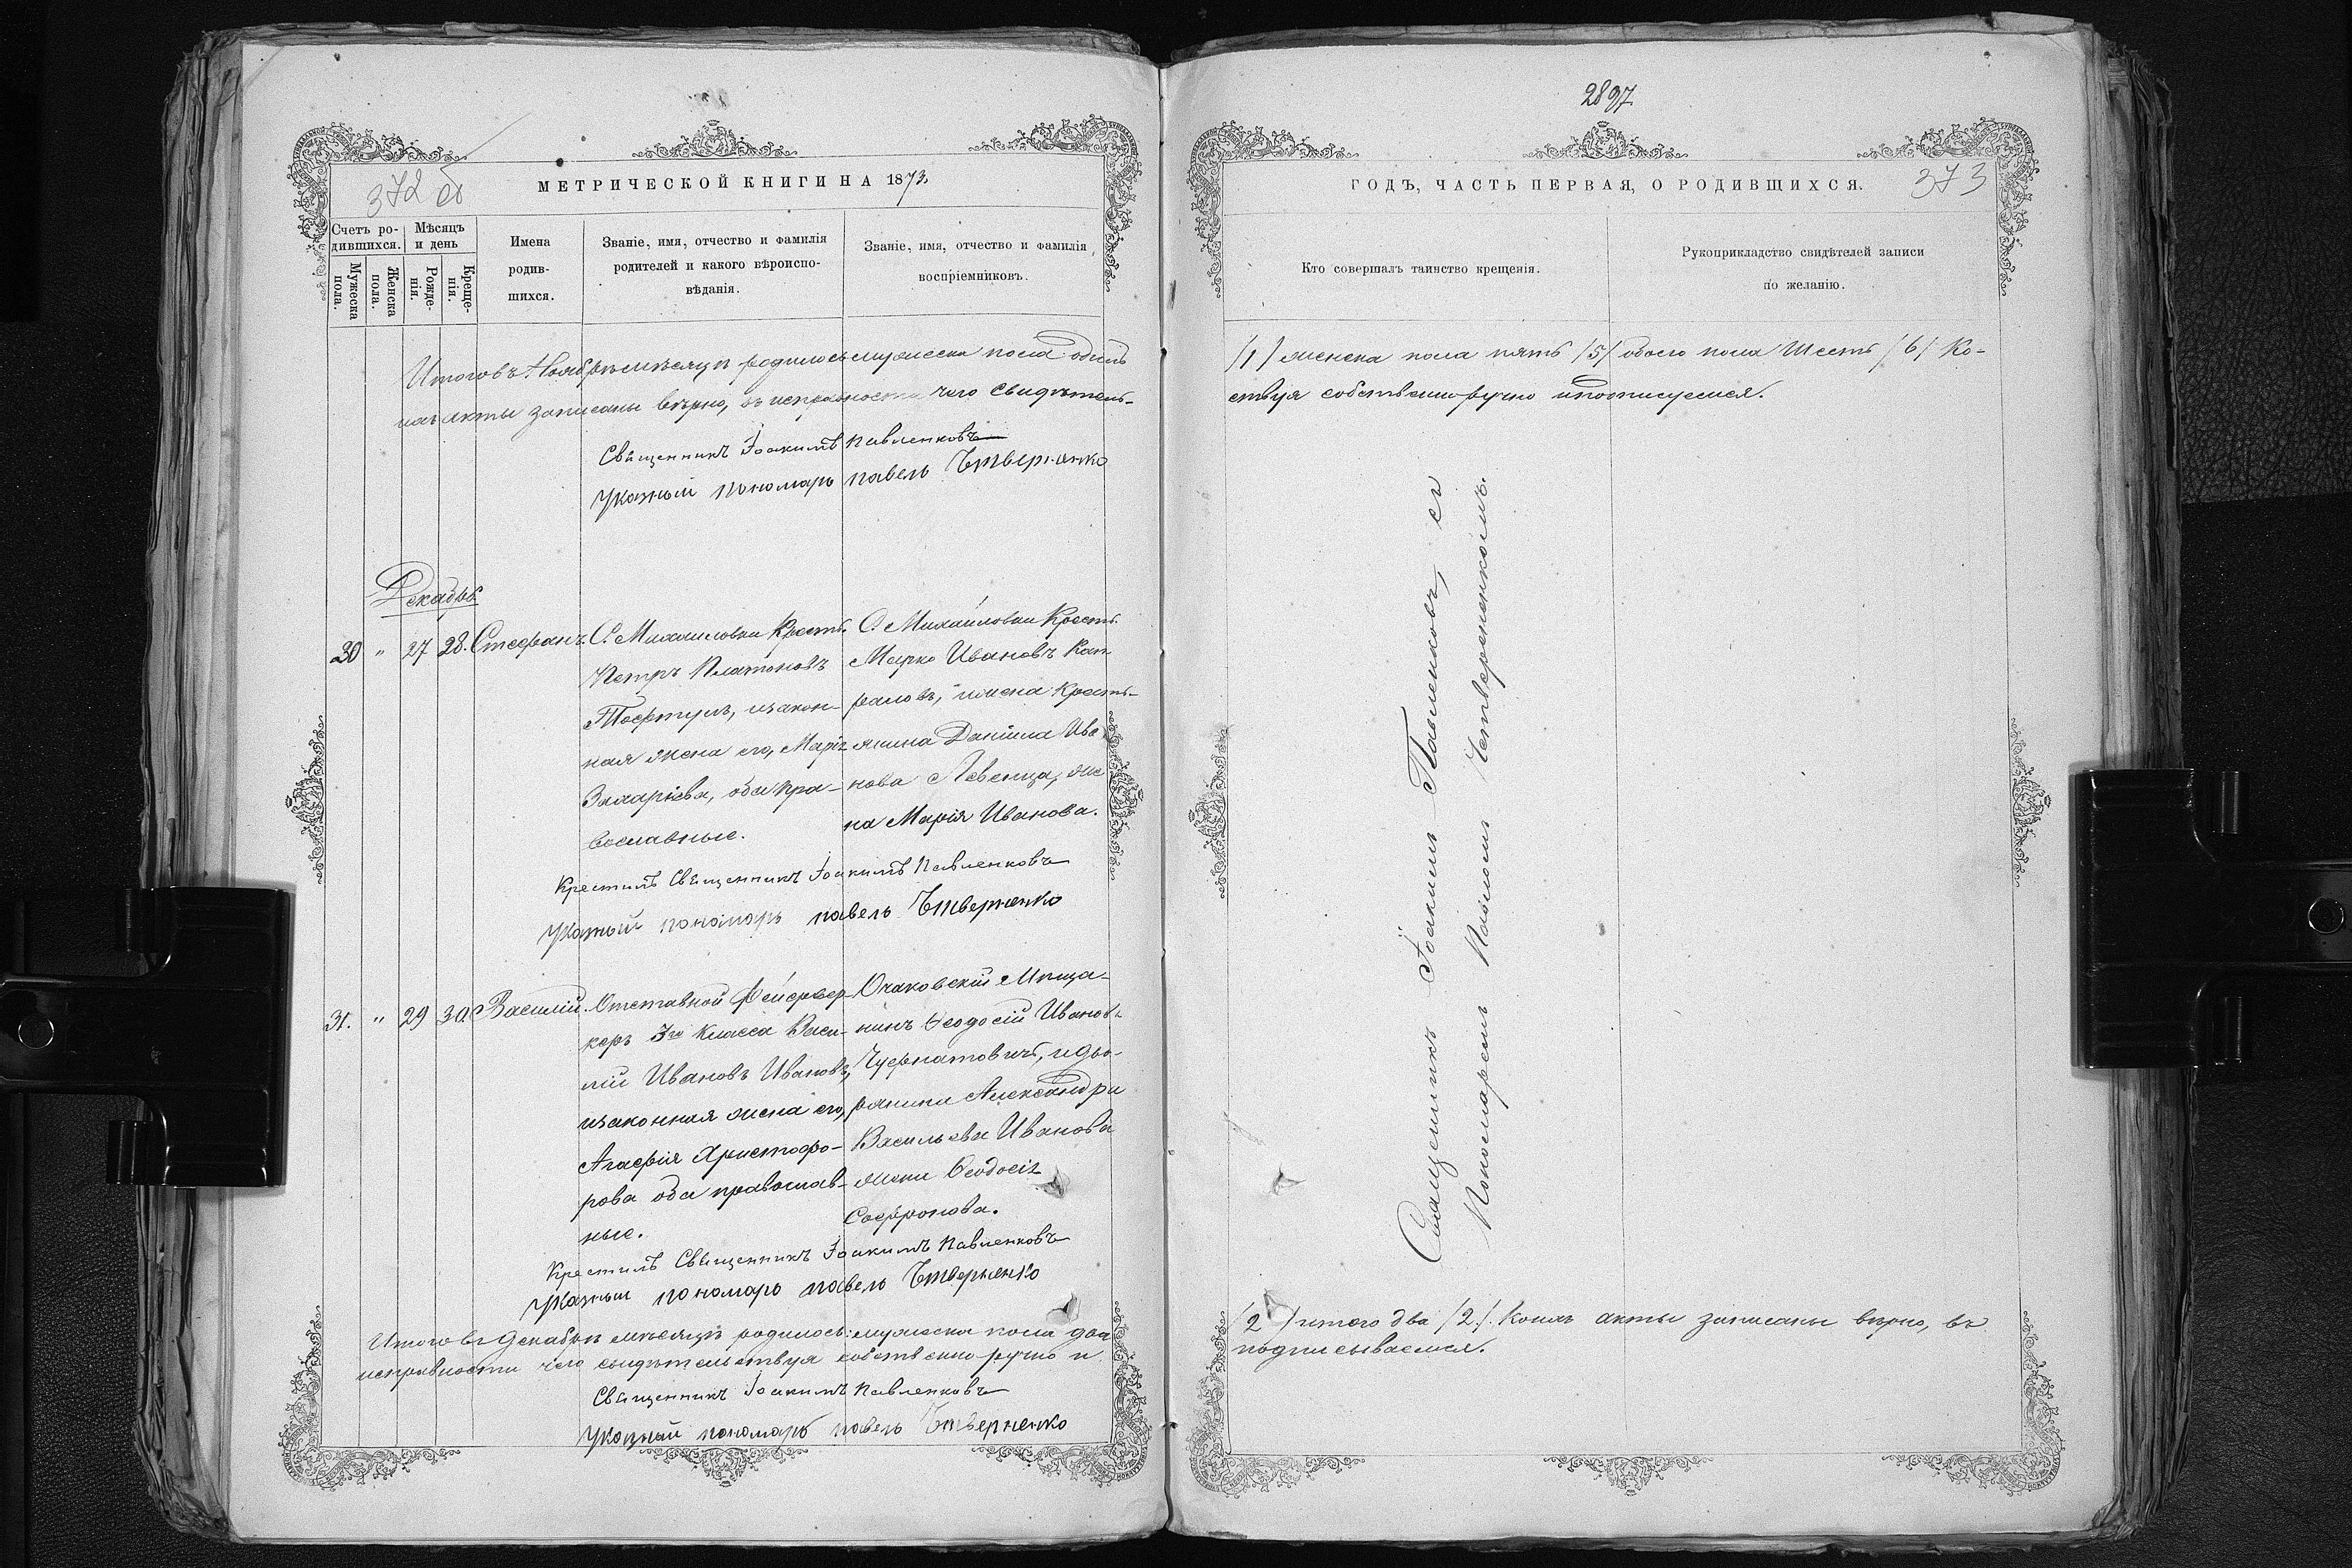 372 об
МЕТРИЧЕСКОЙ КНИГИ НА 1873.
Счетъ ро-
дившихся.
Мужеска
пола.
Женска
пола.
Мѣсяцъ
и день
Рожде-
нія.
Креще-
нія.
Имена
родив-
шихся.
Званіе, имя, отчество и фамилія
родителей и какого вѣроиспо-
вѣданія.
Званіе, имя, отчество и фамилія
воспріемниковъ.
Итого въ Ноябрѣ мѣсяцѣ родилось мужеска пола одинъ
ихъ акты записаны вѣрно, въ исправности чего свидѣтель-
Священникъ Іоакимъ Павленковъ
Указный пономарь павелъ Ѣтверненко
Декабрь
30 " 27 28. Стефанъ.
С. Михаиловки Крестья.
Петръ Платоновъ
законная жена его, Марія
Захаріева, оба пра-
вославные.
С. Михайловки Крестья.
Марко Ивановъ
и жена Кресть-
янина Даніила Ива
нова Левенца, же
на Марія Иванова.
Крестилъ Священникъ Іоакимъ Павленковъ
Указный пономарь павелъ Ѣтверненко
31. " 29 30. Василій.
Отставной фейервер-
керъ 3го Класса Васи-
лій Ивановъ Ивановъ,
и законная жена его,
Агафія Христофо-
рова оба православ-
ные.
Очаковскій Мѣща-
нинъ Ѳеодосій Ивановъ
и дво-
рянина Александра
Васильева Иванова
жена Ѳеодосія
Софронова.
Крестилъ Священникъ Іоакимъ Павленковъ
Указный пономарь павелъ Ѣтверненко
Итого въ Декабрѣ мѣсяцѣ родилось: мужеска пола два
исправности чего свидѣтельствуя собственно-ручно и
Священникъ Іоакимъ Павленковъ
Указный пономарь павелъ Ѣтверненко
2897
ГОДЪ, ЧАСТЬ ПЕРВАЯ, О РОДИВШИХСЯ.
373
Кто совершалъ таинство крещенія.
Рукоприкладство свидѣтелей записи
по желанію.
/1/ женска пола пять /5/ обоего пола Шесть /6/ Ко-
ствуя собственно-ручно и подписуемся.
Священникъ Іоакимъ Павленковъ, съ
Пономаремъ Павломъ Четверненкомъ.
/2/ итого два /2/. Коихъ акты записаны вѣрно, въ
подписываемся.